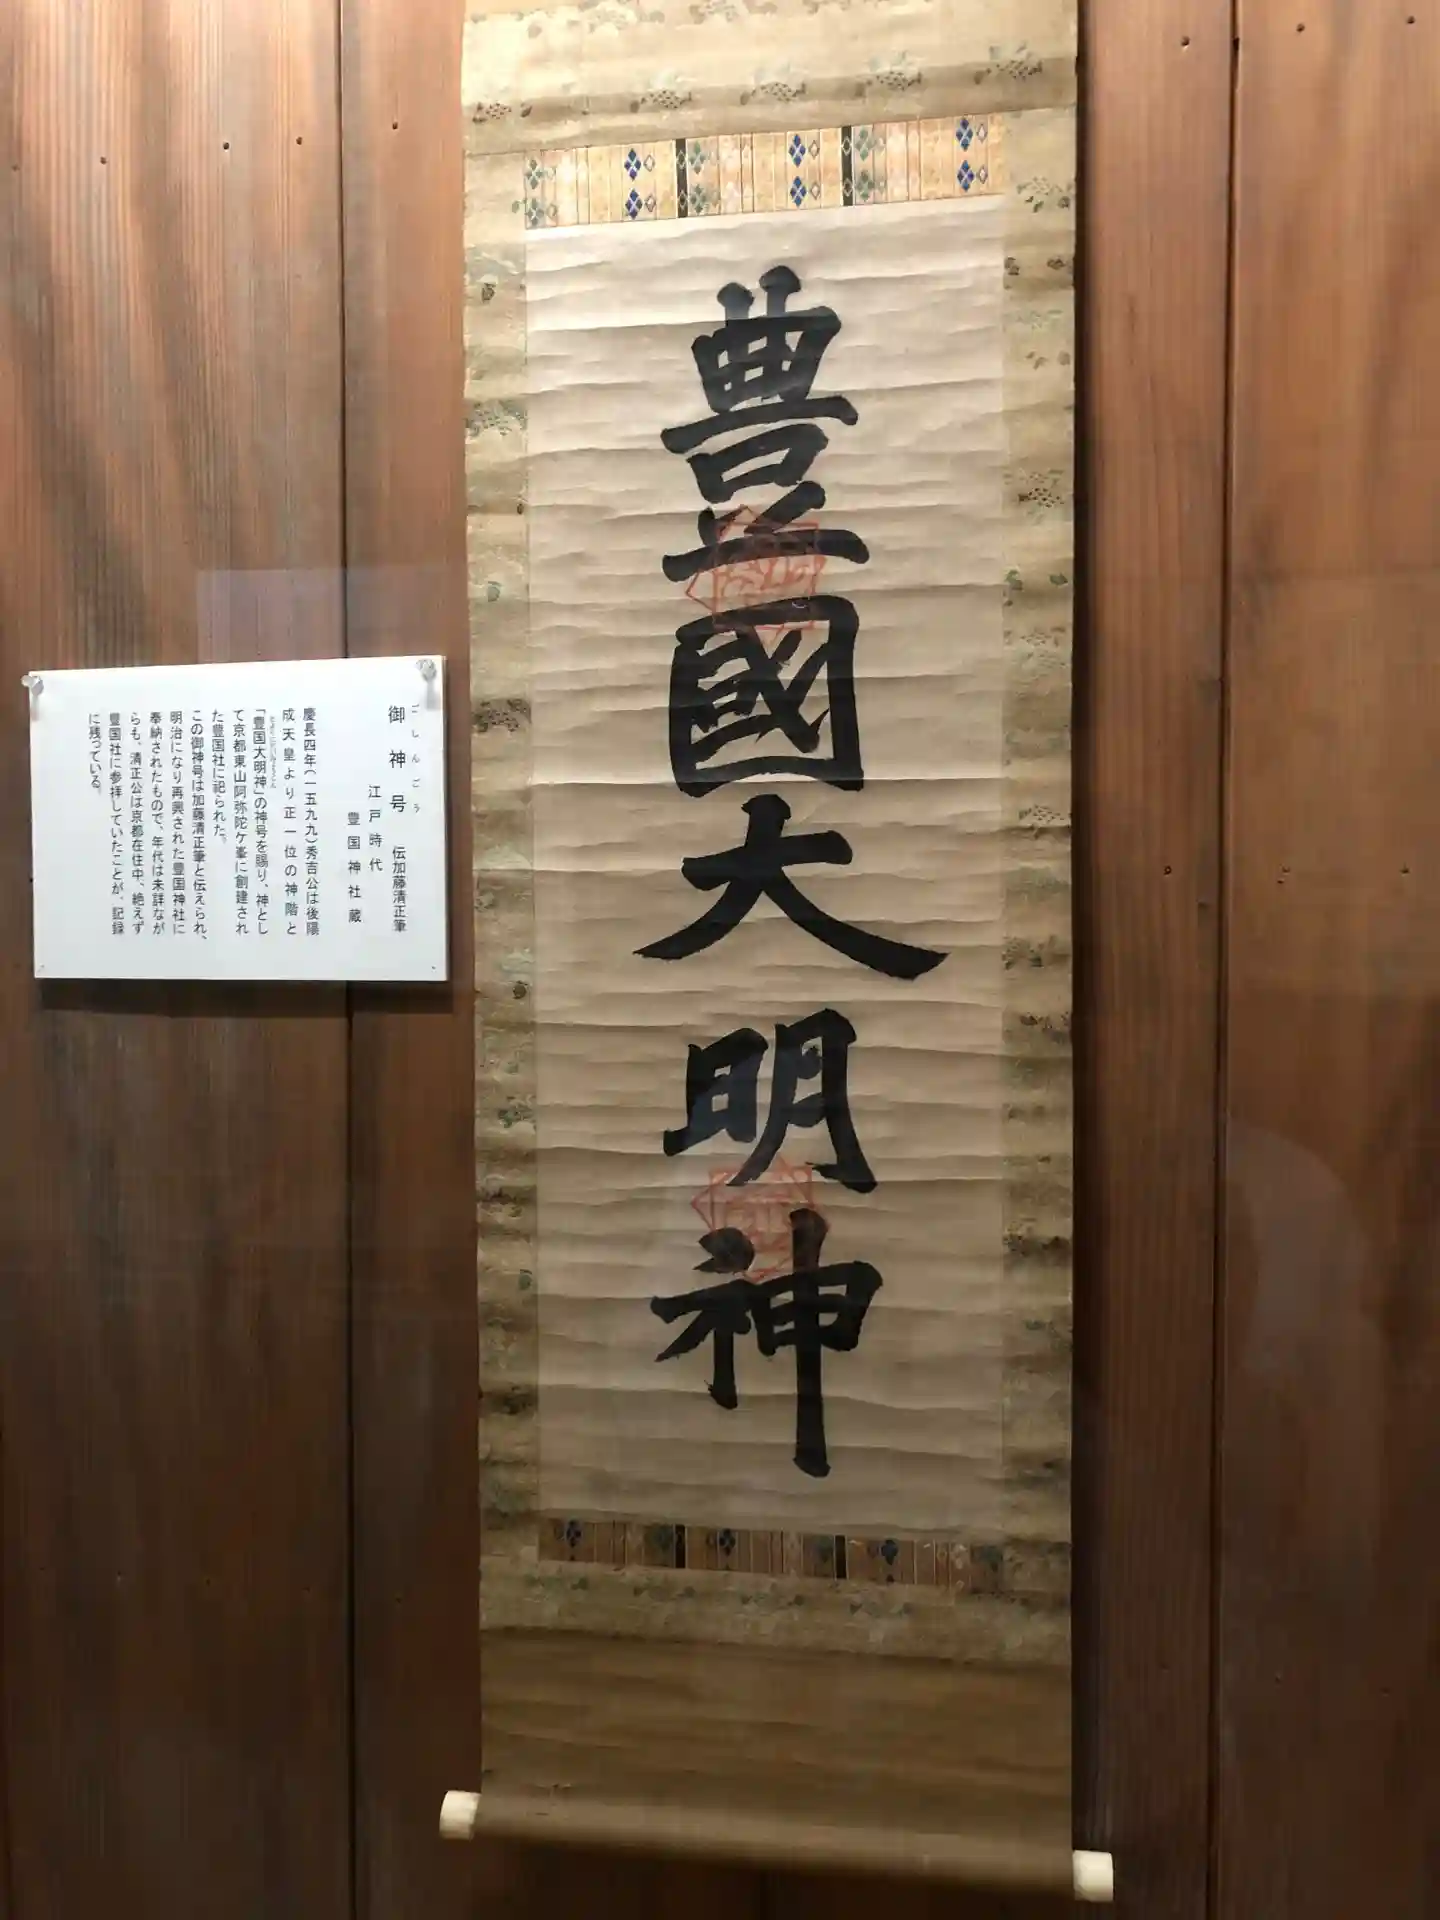 豊國大明神
御神号 伝加藤清正筆
ごしんごう
江戸時代
豊国神社蔵
慶長四年(一五九九)秀吉公は後陽
成天皇より正一位の神階と
「豊国大明神」の神号を賜り、神とし
とよくにだいみょうじん
て京都東山阿弥陀ケ峯に創建され
た豊国社に祀られた。
この御神号は加藤清正筆と伝えられ、
明治になり再興された豊国神社に
奉納されたもので、年代は未詳なが
らも、清正公は京都在住中、絶えず
豊国社に参拝していたことが、記録
に残っている。